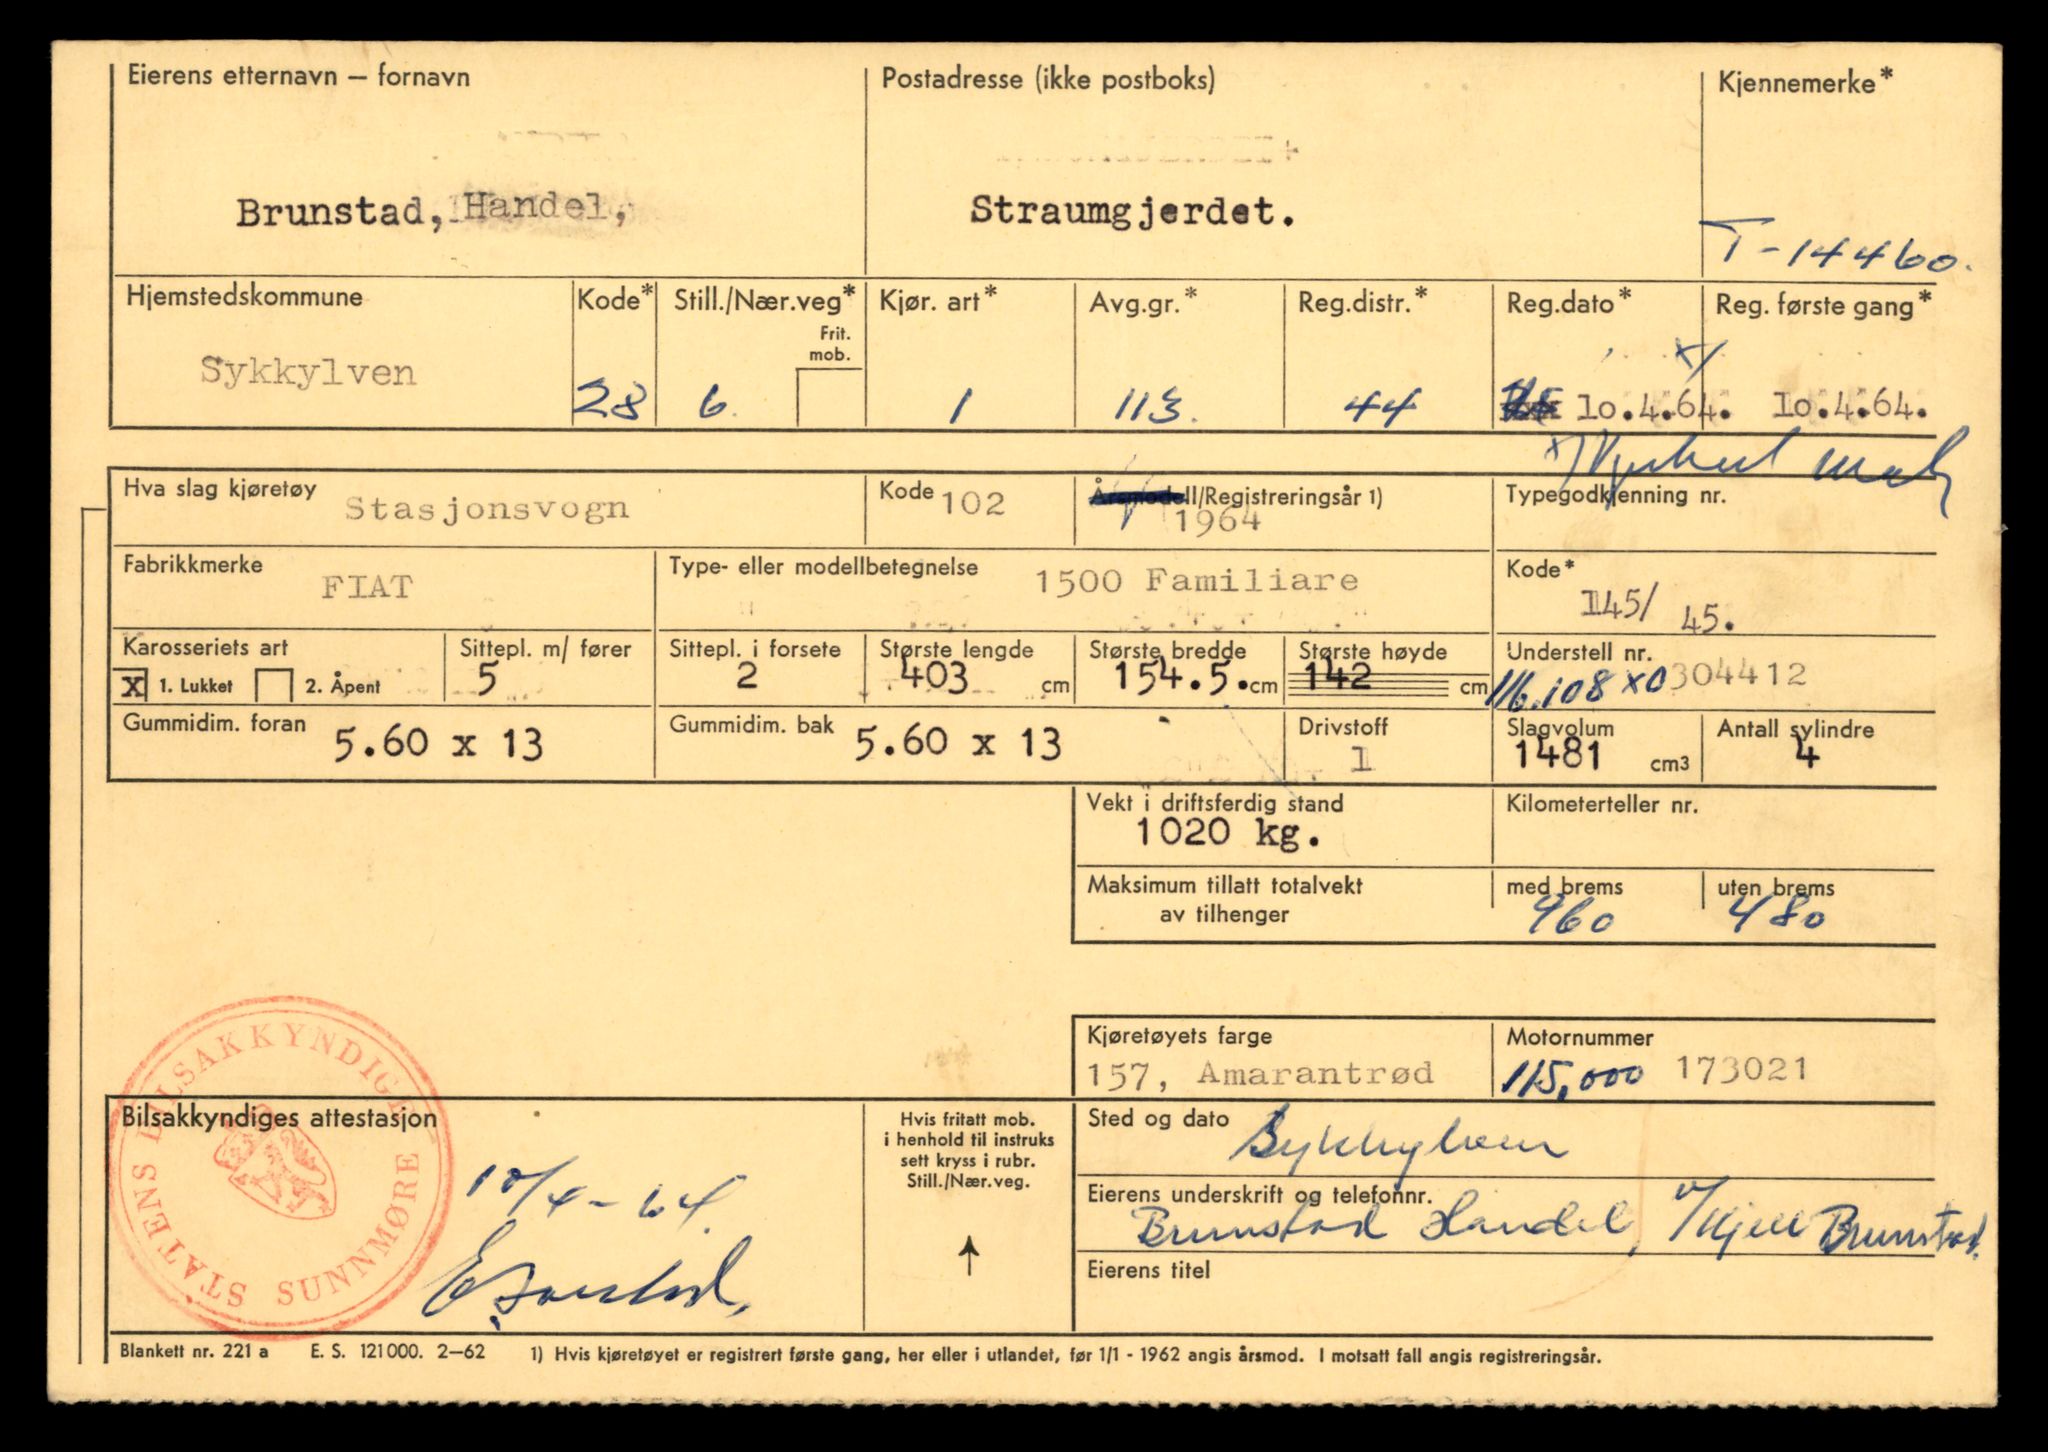 Eierens etternavn — fornavn Postadresse (ikke postboks) Kjennemerke*
Brunstad, Handel, Straumgjerdet.
T-14460.
Hjemstedskommune Kode* Still./Nær.veg* Kjør. art* Avg.gr.* Reg.distr.* Reg.dato* Reg. første gang*
Frit.
mob.
x/
Sykkylven 28 6. 1 113. 44 10.4.64. 10.4.64.
Hva slag kjøretøy Stasjonsvogn Kode 102 Årsmodell/Registreringsår 1) 1964 Typegodkjenning nr.
Fabrikkmerke FIAT Type- eller modellbetegnelse 1500 Familiare Kode* 145/ 45.
Karosseriets art Sittepl. m/ fører Sittepl. i forsete Største lengde Største bredde Største høyde Understell nr.
x 1. Lukket 2. Åpent 5 2 403 cm 154.5. cm 142 cm 116.108 x 0304412
Gummidim. foran 5.60 x 13 Gummidim. bak 5.60 x 13 Drivstoff 1 Slagvolum 1481 cm3 Antall sylindre 4
Vekt i driftsferdig stand Kilometerteller nr.
1020 kg.
Maksimum tillatt totalvekt med brems uten brems
av tilhenger 960 480
Kjøretøyets farge Motornummer
157, Amarantrød 115,000 173021
STATENS BILSAKKYNDIGE SUNNMØRE
Bilsakkyndiges attestasjon
10/4-64.
Hvis fritatt mob.
i henhold til instruks
sett kryss i rubr.
Still./Nær.veg.
Sted og dato Sykkylven
Eierens underskrift og telefonnr.
Brunstad Handel, v/Kjell Brunstad.
Eierens titel
Blankett nr. 221 a E. S. 121000. 2—62 1) Hvis kjøretøyet er registrert første gang, her eller i utlandet, før 1/1 - 1962 angis årsmod. I motsatt fall angis registreringsår.